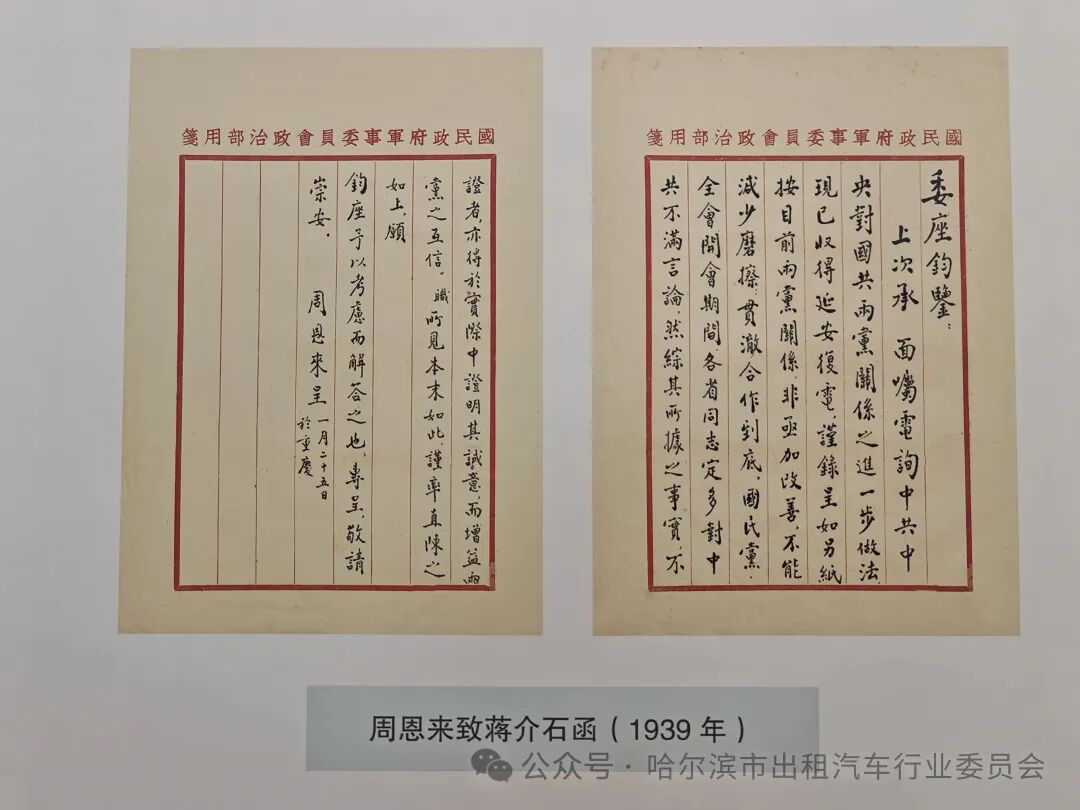 國民政府軍事委員會政治部用箋
委座鈞鑒：
上次承　面囑電詢中共中
央對國共兩黨關係之進一步做法，
現已收得延安復電，謹錄呈如另紙
按目前兩黨關係，非亟加改善，不能
減少磨擦，貫澈合作到底。國民黨
全會開會期間，各省同志定多對中
共不滿言論，然綜其所據之事實，不
國民政府軍事委員會政治部用箋
證者，亦得於實際中證明其誠意，而增益兩
黨之互信。職所見本末如此，謹率直陳之
如上，願
鈞座予以考慮而解答之也。專呈，敬請
崇安。
周恩來呈 一月二十五日
於重慶
周恩来致蒋介石函（1939 年）
公众号·哈尔滨市出租汽车行业委员会